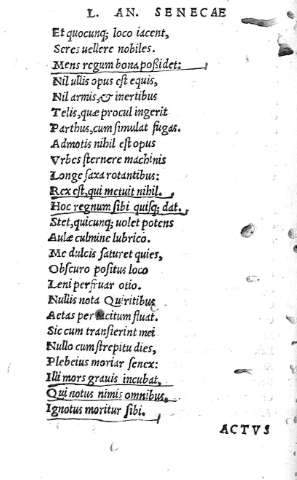 L. AN. SENECAE
Et quocunq; loco iacent,
Seres uellere nobiles.
Mens regum bona possidet:
Nil ullis opus est equis,
Nil armis, & inertibus
Telis, quæ procul ingerit
Parthus, cum simulat fugas.
Admotis nihil est opus
Vrbes sternere machinis
Longe saxa rotantibus:
Rex est, qui metuit nihil.
Hoc regnum sibi quisq; dat.
Stet, quicunq; uolet potens
Aulæ culmine lubrico.
Me dulcis saturet quies,
Obscuro positus loco
Leni perfruar otio.
Nullis nota Quiritibus
Aetas per tacitum fluat.
Sic cum transierint mei
Nullo cum strepitu dies,
Plebeius moriar senex:
Illi mors grauis incubat,
Qui notus nimis omnibus,
Ignotus moritur sibi.
ACTVS